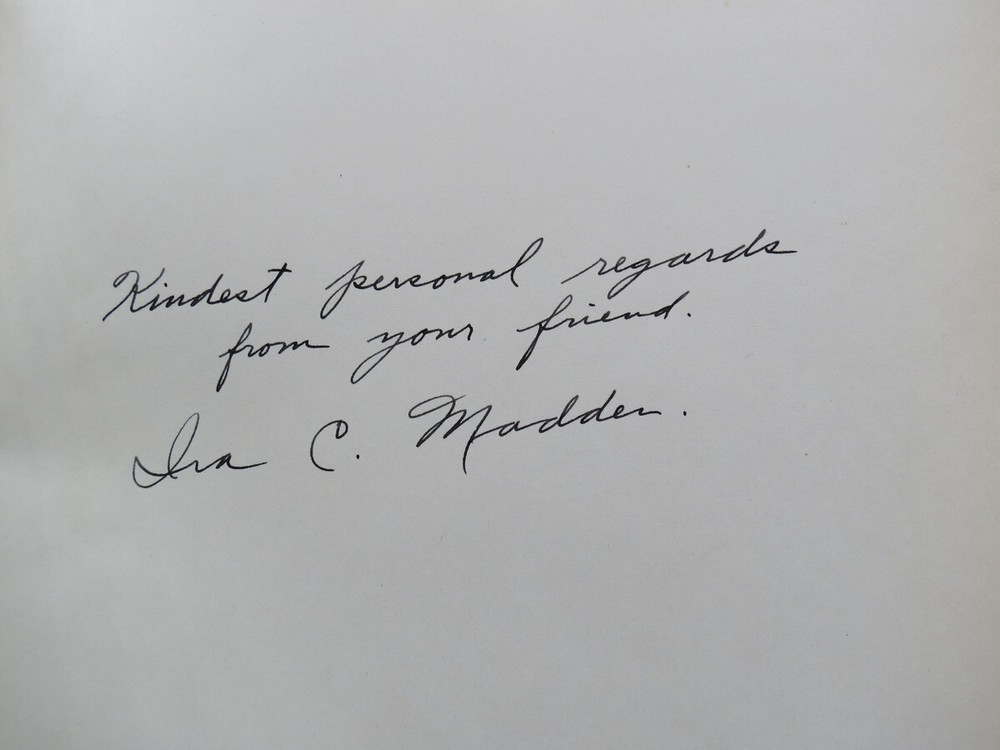 Kindest personal regards
from your friend.
Ira C. Madden.